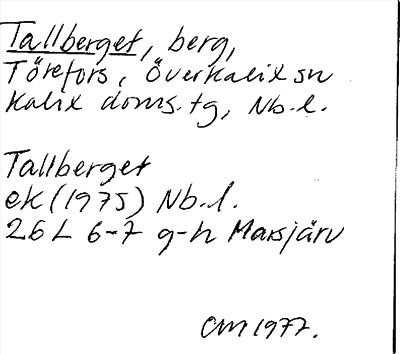 Tallberget, berg,
Törefors, Överkalix sn
Kalix doms.tg, Nb.l.
Tallberget
ek (1975) Nb.l.
26 L 6-7 g-h Marsjärv
CM 1977.